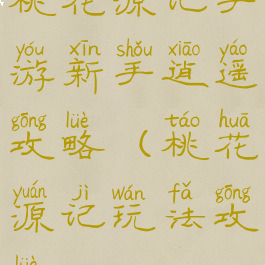 桃花源记手
yóu xīn shǒu xiāo yáo
游新手逍遥
gōng lüè （ táo huā
攻略（桃花
yuán jì wán fǎ gōng
源记玩法攻
lüè